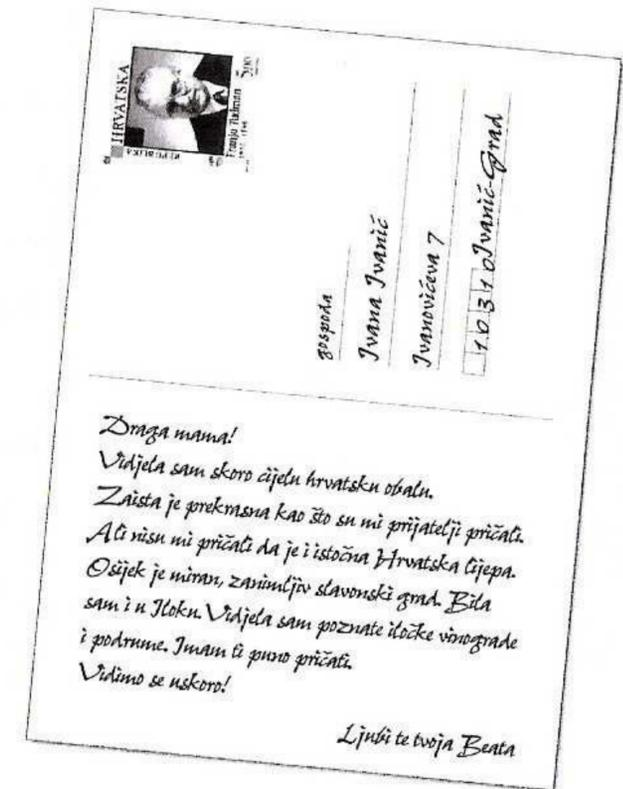 REPUBLIKA
HRVATSKA
Franjo Tuđman
5,00
gospođa
Ivana Ivanić
Ivanovićeva 7
10310 Ivanić-Grad
Draga mama!
Vidjela sam skoro cijelu hrvatsku obalu.
Zaista je prekrasna kao što su mi prijatelji pričali.
Ali nisu mi pričali da je i istočna Hrvatska lijepa.
Osijek je miran, zanimljiv slavonski grad. Bila
sam i u Iloku. Vidjela sam poznate iločke vinograde
i podrume. Imam ti puno pričati.
Vidimo se uskoro!
Ljubi te tvoja Beata